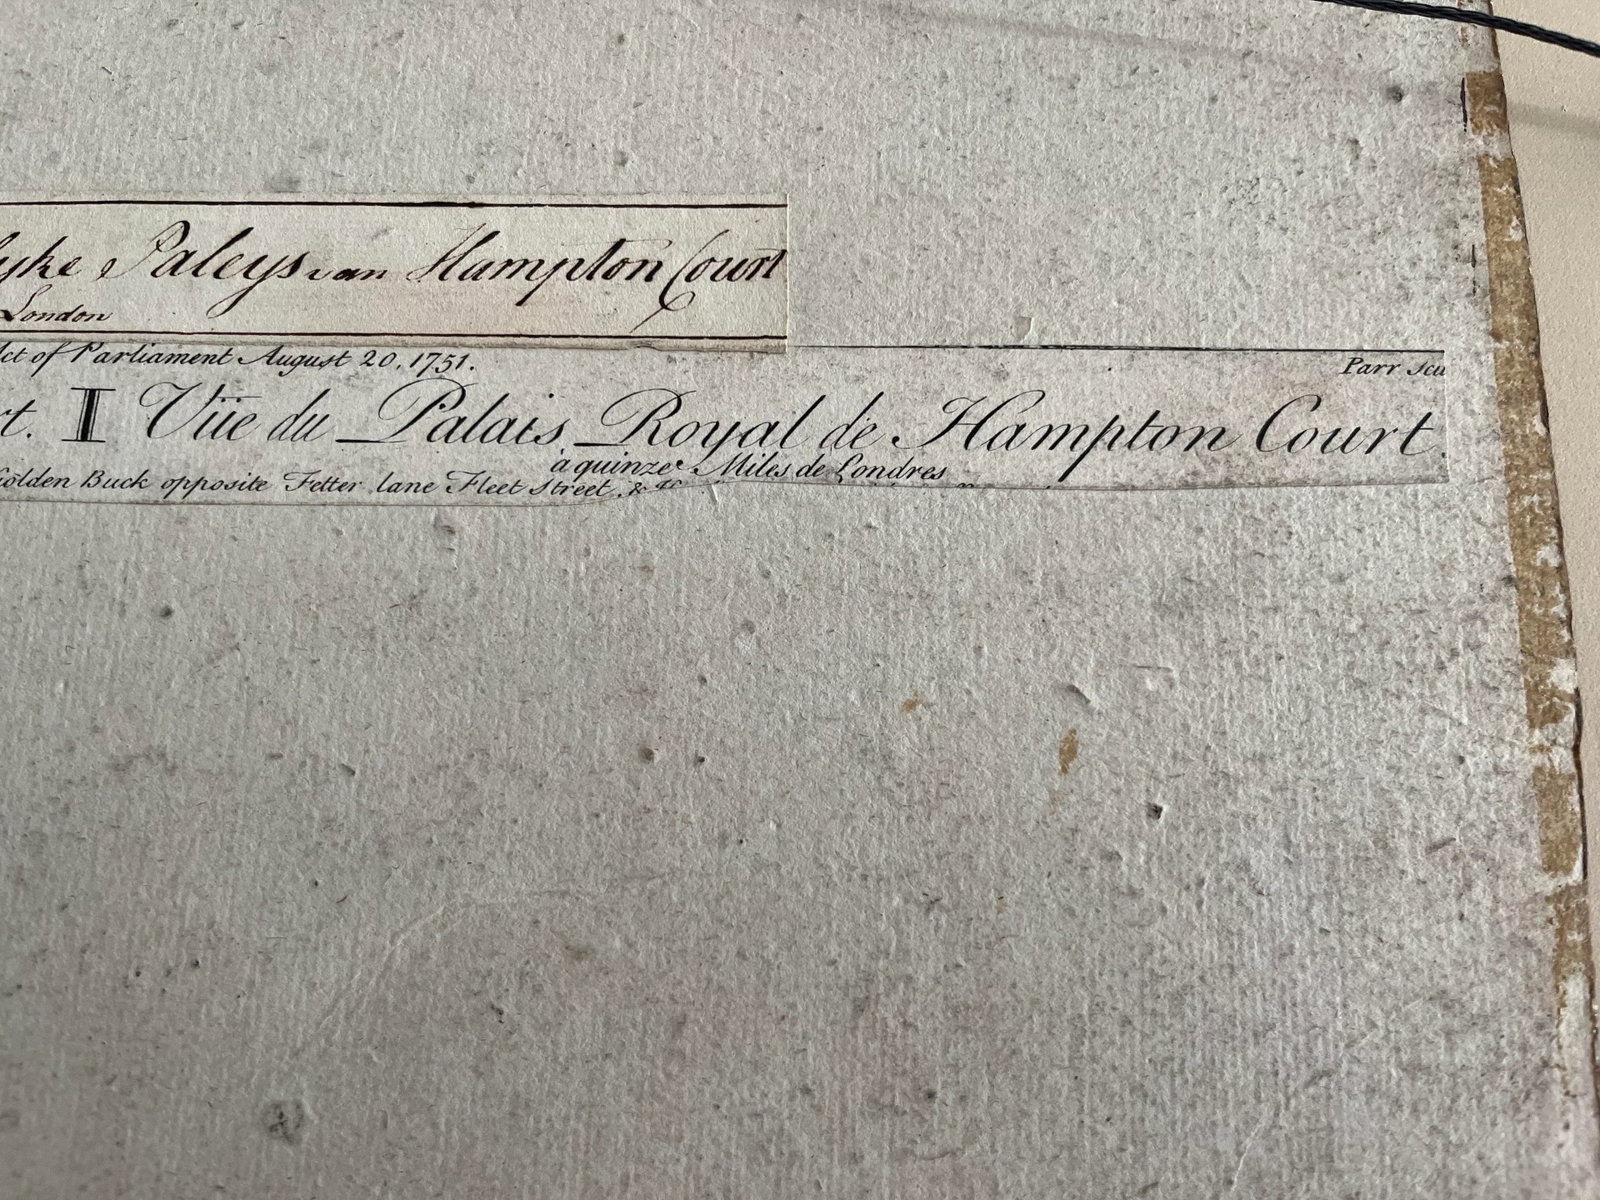 lyke Paleys van Hampton Court
London
Act of Parliament August 20, 1751.
Parr Scu
rt. I Vüe du Palais Royal de Hampton Court.
à quinze Miles de Londres
Golden Buck opposite Fetter lane Fleet Street, &